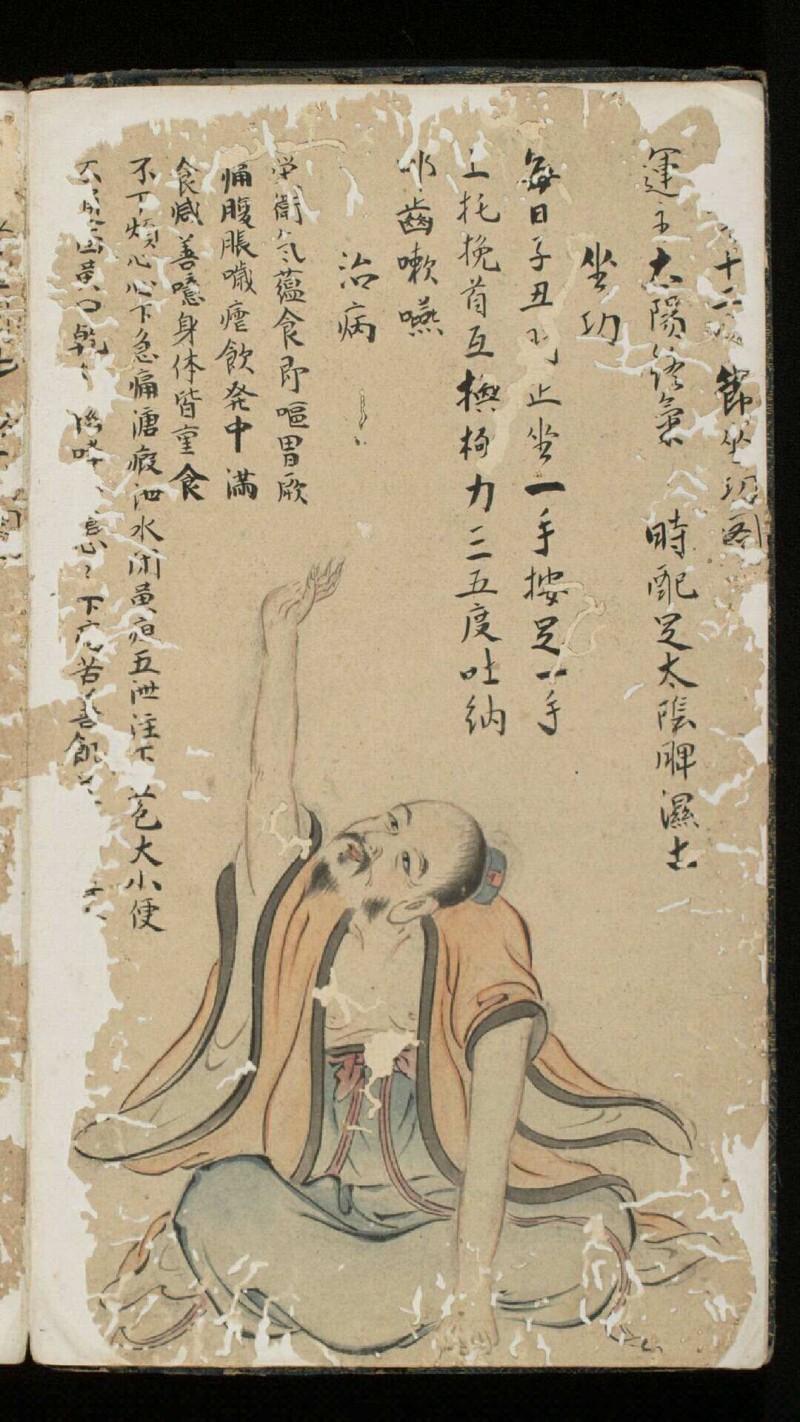 十二月節坐功图
運主太陽終氣 時配足太陰脾濕土
坐功
每日子丑時正坐一手按足一手
上托挽首互換極力三五度吐納
叩齒嗽嚥
治病
榮衛氣蘊食即嘔胃脘
痛腹脹噦瘧飲発中滿
食减善噫身体皆重食
不下煩心心下急痛溏瘕泄水闭黄疸五泄注下色大小便
面黄口乾 下痞苦善飢